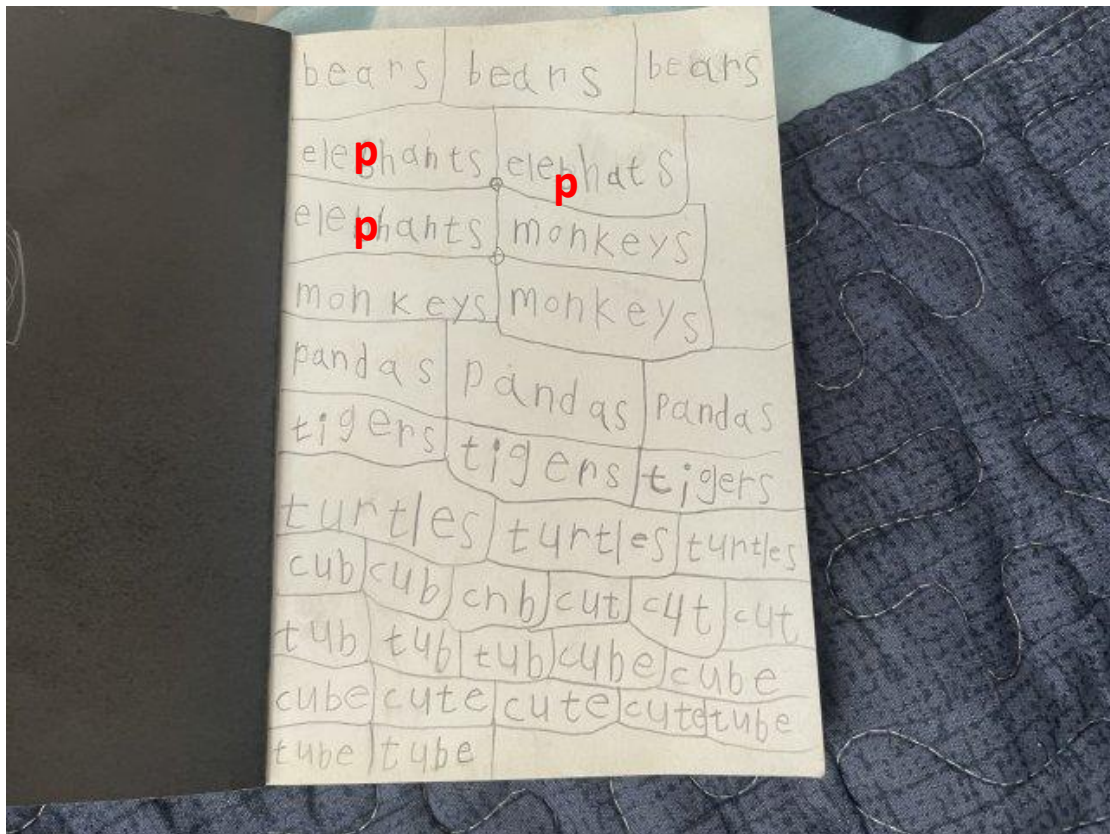 bears bears bears
elephants elephats
elephants monkeys
monkeys monkeys
pandas pandas pandas
tigers tigers tigers
turtles turtles turtles
cub cub cnb cut cut cut
tub tub tub cube cube
cube cute cute cute tube
tube tube